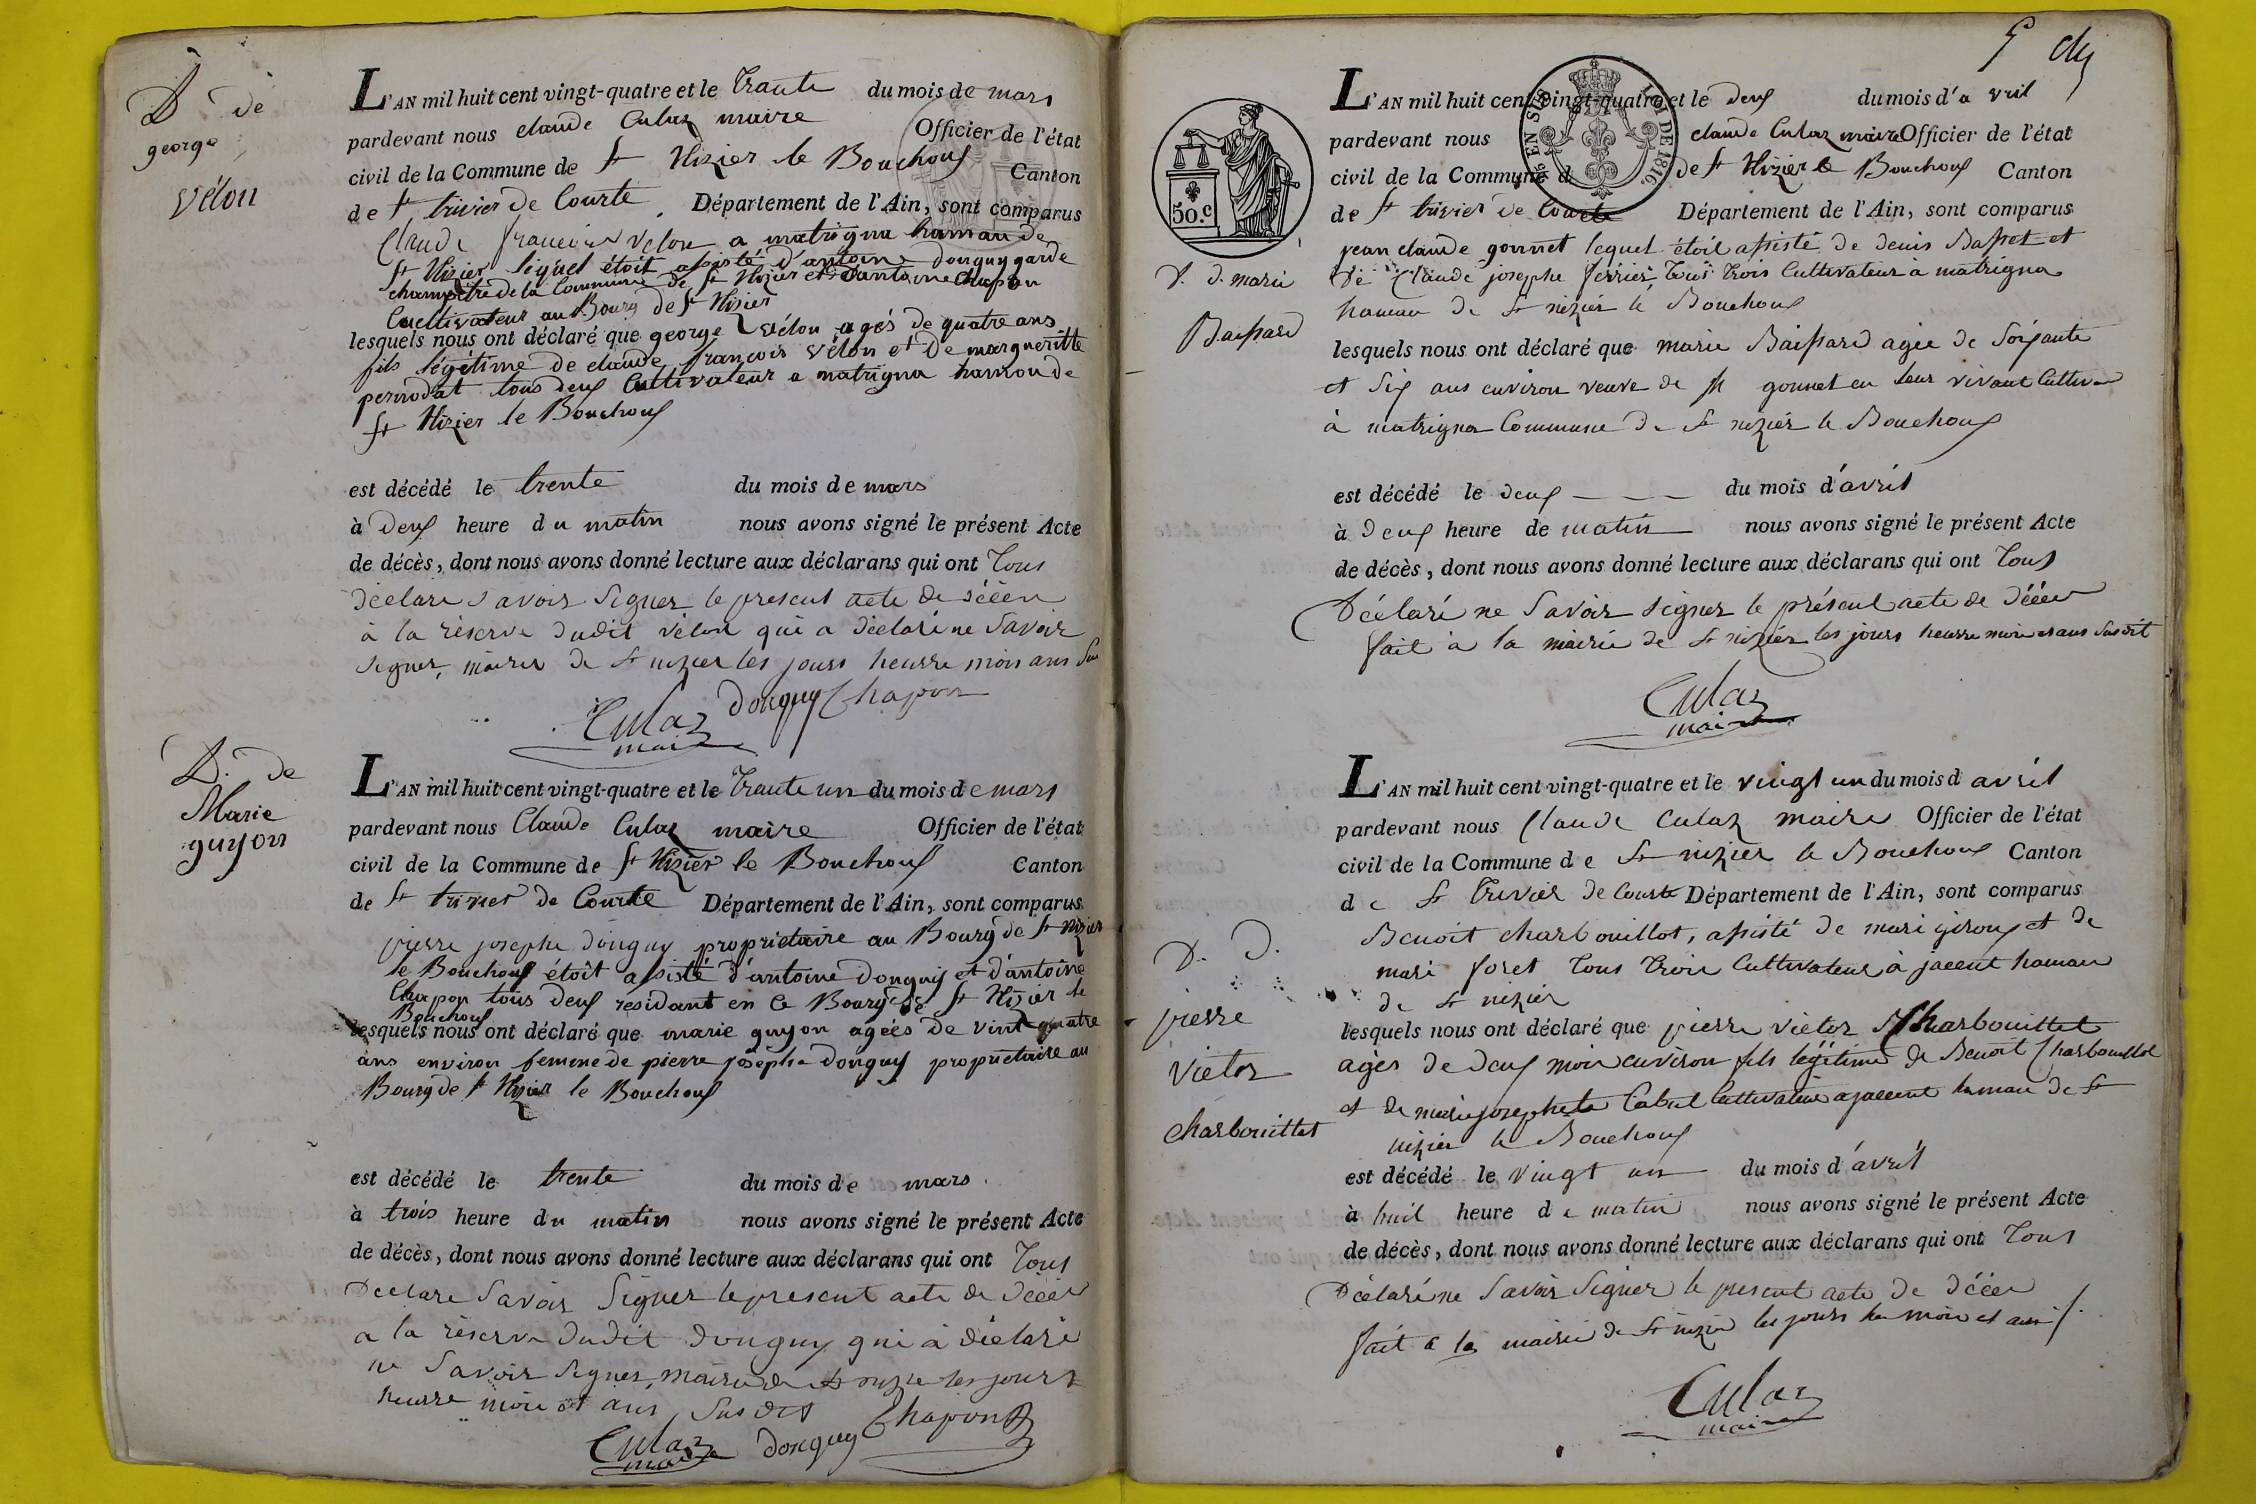 D. de
george
vélon
L'AN mil huit cent vingt-quatre et le traute du mois de mars
pardevant nous claude Culaz maire Officier de l'état
civil de la Commune de St Nizier le Bouchoux Canton
de St trivier de Courte Département de l'Ain, sont comparus
Claude francois velon a matrigna hamau de
St Nizier lequel étoit assisté d'antoine donguy garde
champetre de la Commune de St Nizier et d'antoine Chapon
Cultivateur au Bourg de St Nizier
lesquels nous ont déclaré que george vélon agés de quatre ans
fils légétime de claude françois vélon et de margueritte
perrodat tous deux Cultivateur a matrigna hamau de
St Nizier le Bouchoux
est décédé le trente du mois de mars
à deux heure du matin nous avons signé le présent Acte
de décès, dont nous avons donné lecture aux déclarans qui ont tous
déclare savoir signer le present acte de déèen
à la réserve dudit vélon qui a déclaré ne savoir
signer, mairie de St nizier les jours heurre mois ans Sus
Culaz maire donguy Chapon
D. de
Marie
guyon
L'AN mil huit cent vingt-quatre et le traute un du mois de mars
pardevant nous Claude Culaz maire Officier de l'état
civil de la Commune de St Nizier le Bouchoux Canton
de St trivier de Courte Département de l'Ain, sont comparus
pierre josephe donguy proprietaire au Bourg de St Nizier
le Bouchoux étoit assisté d'antoine donguy et d'antoine
Chapon tous deux residant en ce Bourg de St Nizier le
Bouchoux
lesquels nous ont déclaré que marie guyon agées de vint quatre
ans environ femme de pierre josephe donguy proprietaire au
Bourg de St Nizier le Bouchoux
est décédé le trente du mois de mars
à trois heure du matin nous avons signé le présent Acte
de décès, dont nous avons donné lecture aux déclarans qui ont tous
Déclare savoir signer le present acte de déèen
a la réserve dudit donguy qui à déclaré
ne savoir signer, mairie de St nizie les jours
heurre mois et ans susdit
Culaz maire donguy Chapon
5
EN SUS
LOI DE 1816
50.c
D. d. marie
Baissard
L'AN mil huit cent vingt-quatre et le deux du mois d'avril
pardevant nous claude Culaz maire Officier de l'état
civil de la Commune de St Nizier le Bouchoux Canton
de St trivier de Courte Département de l'Ain, sont comparus
jean claude gonnet lequel étoit assisté de denis Basset et
de Claude josephe ferrier tous trois Cultivateur à matrigna
hamau de St nizier le Bouchoux
lesquels nous ont déclaré que marie Baissard agée de soixante
et six ans environ veuve de gonnet en leur vivant Cultiv
à matrigna Commune de St nizier le Bouchoux
est décédé le deux du mois d'avril
à deux heure de matin nous avons signé le présent Acte
de décès, dont nous avons donné lecture aux déclarans qui ont tous
Déclaré ne savoir signer le présent acte de déèen
fait à la mairie de St nizier les jours heurre mois et ans susdit
Culaz
maire
D. D.
pierre
victor
charbouillet
L'AN mil huit cent vingt-quatre et le vingt un du mois d avril
pardevant nous Claude Culaz maire Officier de l'état
civil de la Commune de St nizier le Bouchoux Canton
de St trivier de Courte Département de l'Ain, sont comparus
Benoit charbouillot, assisté de mari giroux et de
mari foret tous trois Cultivateur à jacent hamau
de St nizier
lesquels nous ont déclaré que pierre victor Charbouillet
agés de deux mois environ fils légétime de Benoit Charbouillot
et de marie josephete Cabut Cultivateur a jacent hamau de St
nizier le Bouchoux
est décédé le vingt un du mois d'avril
à huit heure de matin nous avons signé le présent Acte
de décès, dont nous avons donné lecture aux déclarans qui ont tous
Déclaré ne savoir signer le present acte de déèen
fait a la mairie de St nizie les jours heu mois et ans
Culaz
maire